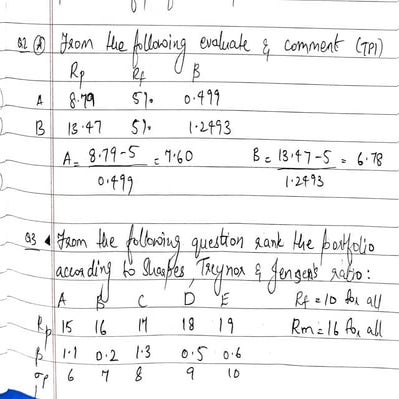 Q2 A) From the following evaluate & comment (TPI)
Rp Rf β
A 8.79 5%. 0.499
B 13.47 5%. 1.2493
A = 8.79 - 5 / 0.499 = 7.60 B = 13.47 - 5 / 1.2493 = 6.78
Q3 From the following question rank the portfolio
according to Sharpes, Treynor & Jensen's ratio:
A B C D E Rf = 10 for all
Rp 15 16 17 18 19 Rm = 16 for all
β 1.1 0.2 1.3 0.5 0.6
σp 6 7 8 9 10